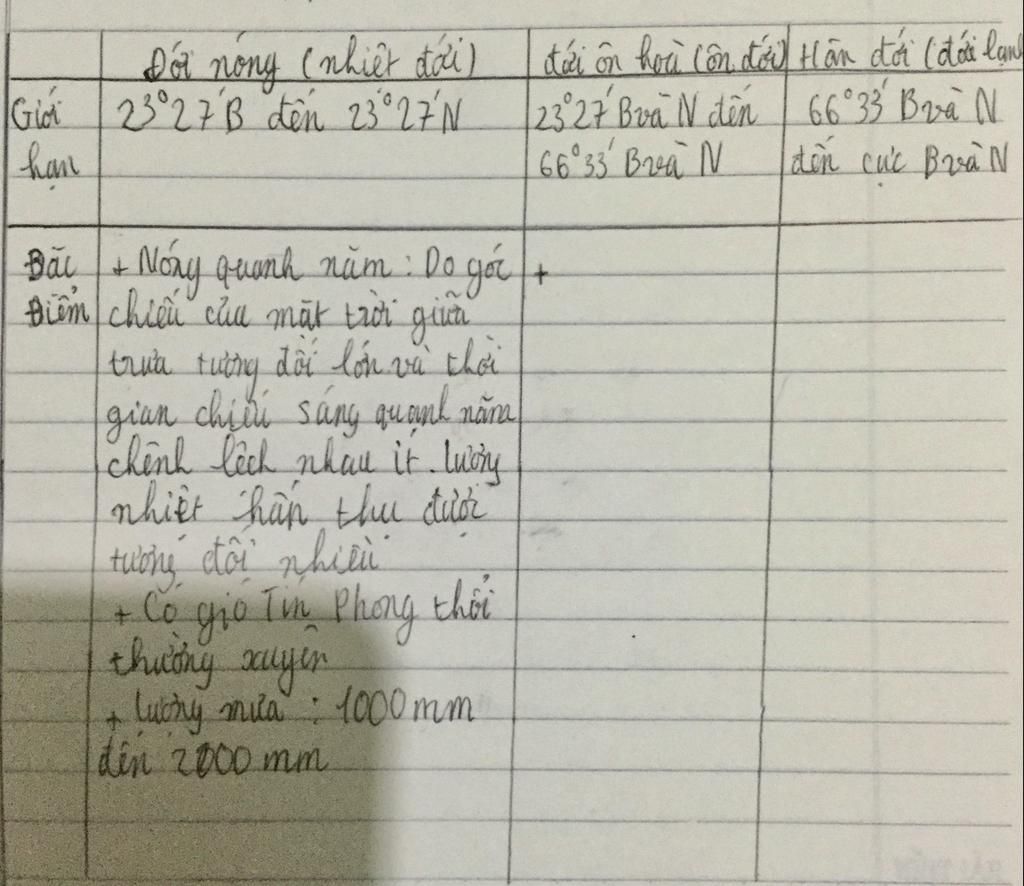 Đới nóng (nhiệt đới) đới ôn hoà (ôn đới) Hàn đới (đới lạnh
Giới 23°27'B đến 23°27'N 23°27'B và N đến 66°33' B và N
hạn 66°33' B và N đến cực B và N
Đăc + Nóng quanh năm : Do góc +
Điểm chiếu của mặt trời giữa
trưa tương đối lớn và thời
gian chiếu sáng quanh năm
chênh lệch nhau ít. lượng
nhiệt hấp thu được
tương đối nhiều
+ Có gió Tín Phong thổi
thường xuyên
+ lượng mưa : 1000mm
đến 2000mm